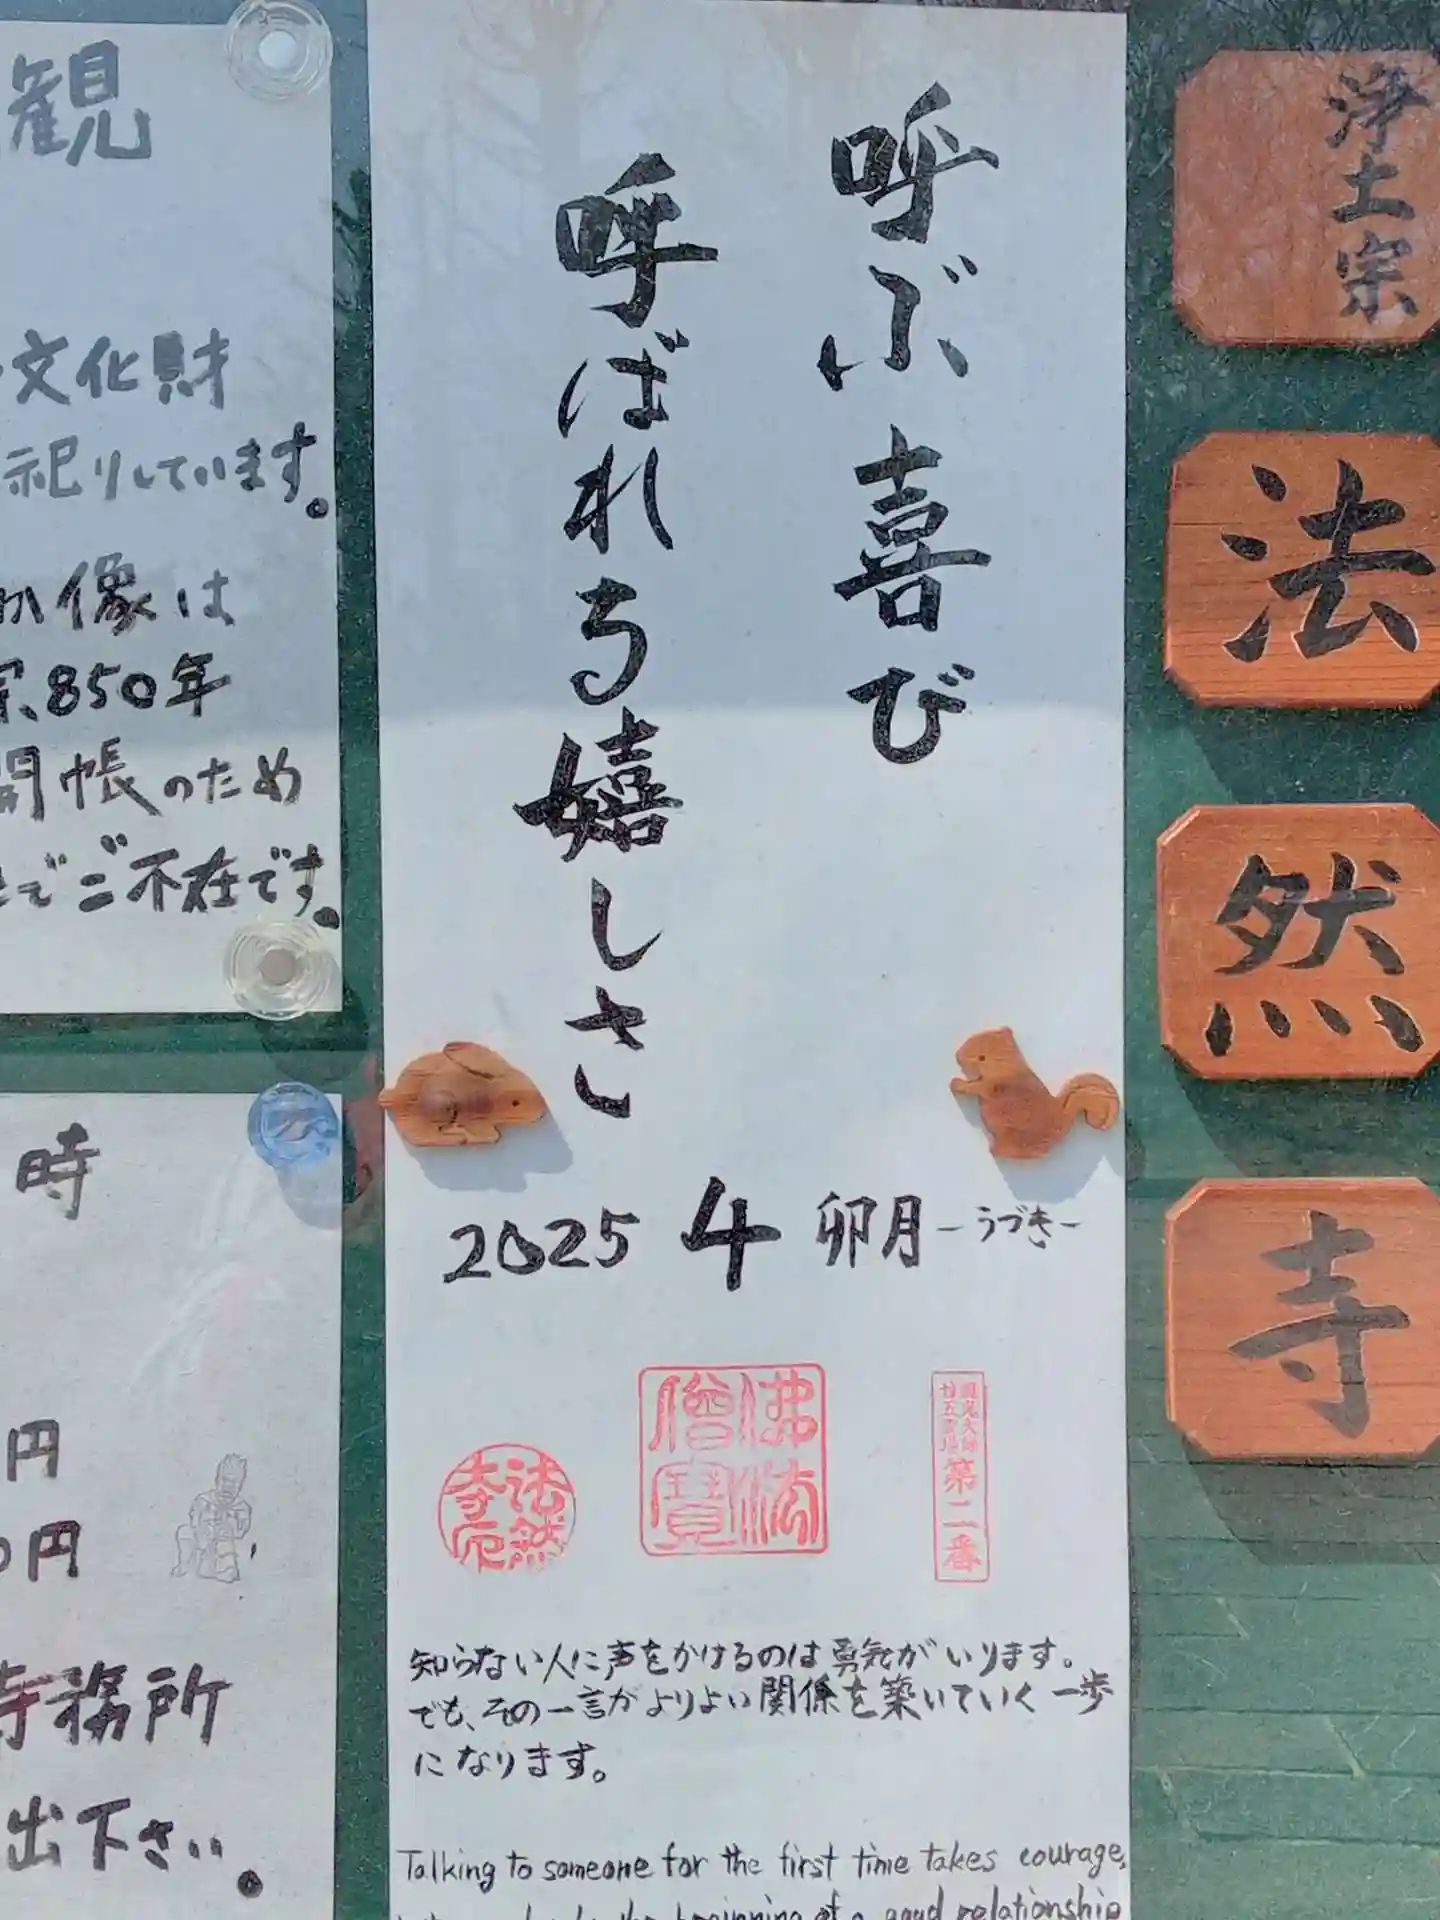 浄土宗
法
然
寺
呼ぶ喜び
呼ばれる嬉しさ
2025 4 卯月 -うづき-
佛法
僧寶
法然
寺印
第二番
知らない人に声をかけるのは勇気がいります。
でも、その一言がよりよい関係を築いていく一歩
になります。
Talking to someone for the first time takes courage,
the beginning of a good relationship
観
文化財
祀りしています。
像は
850年
開帳のため
でご不在です。
時
円
0円
寺務所
出下さい。